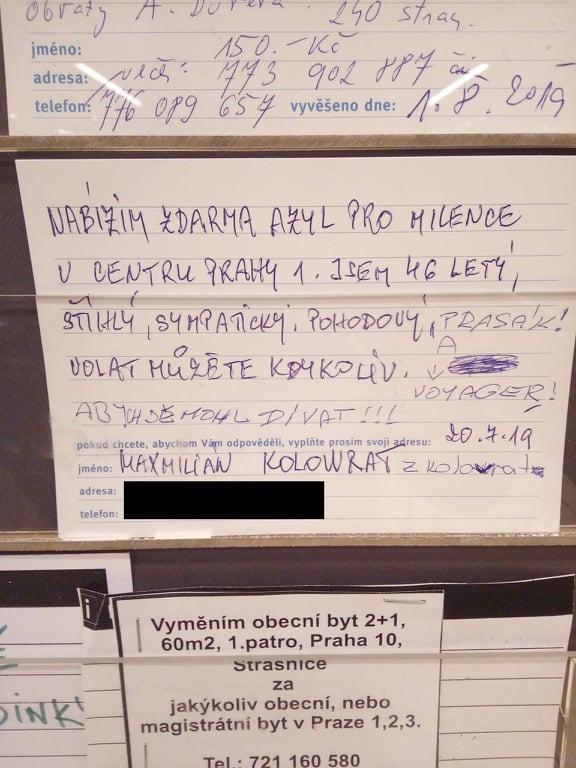 Obrazy A. 240 stran.
jméno: 150.-Kč
adresa: 773 902 887 či
telefon: 776 089 657 vyvěšeno dne: 1.8.2019
NABÍZÍM ZDARMA AZYL PRO MILENCE
V CENTRU PRAHY 1. JSEM 46 LETÝ,
ŠTÍHLÝ, SYMPATICKÝ, POHODOVÝ, PRASÁK!
A
VOLAT MŮŽETE KDYKOLIV.
VOYAGER!
ABYCH SE MOHL DÍVAT!!!
pokud chcete, abychom Vám odpověděli, vyplňte prosím svoji adresu: 20.7.19
jméno: MAXMILIÁN KOLOWRAT z kolowrat
adresa:
telefon:
i
Vyměním obecní byt 2+1,
60m2, 1.patro, Praha 10,
Strašnice
za
jakýkoliv obecní, nebo
magistrátní byt v Praze 1,2,3.
Tel.: 721 160 580